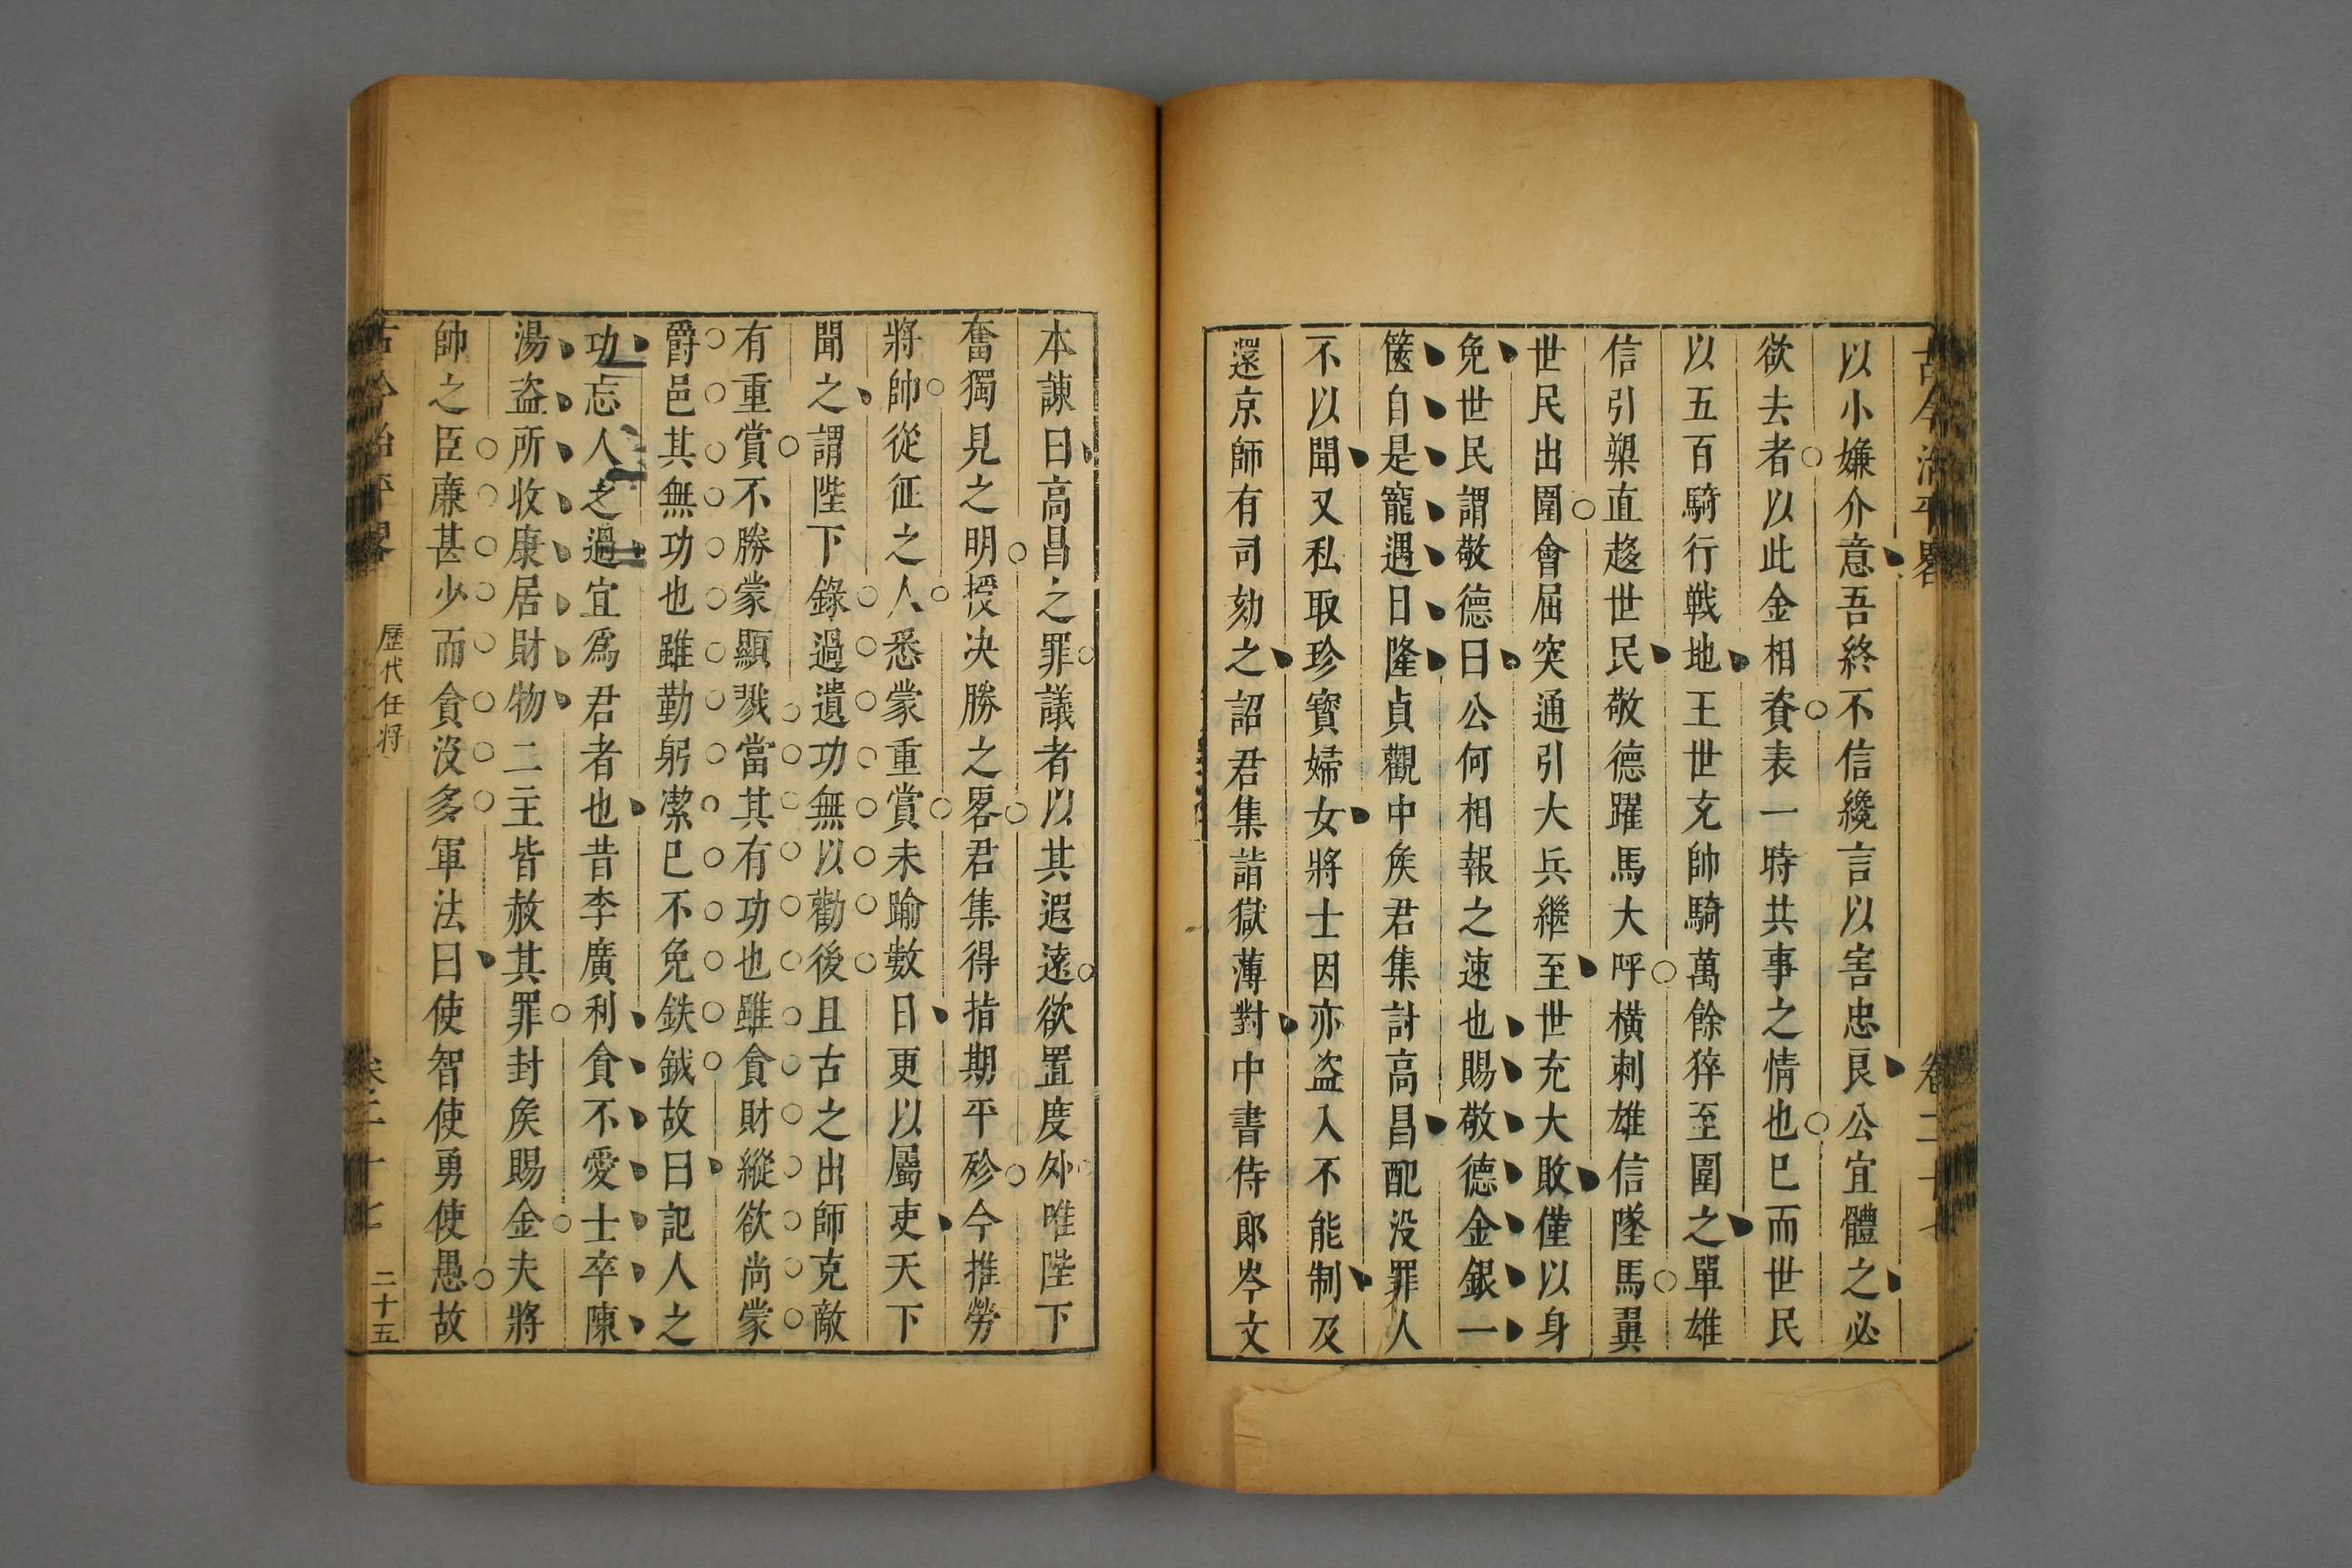 古今治平畧 卷二十七
以小嫌介意吾終不信纔言以害忠良公宜體之必
欲去者以此金相資表一時共事之情也巳而世民
以五百騎行戰地王世充帥騎萬餘猝至圍之單雄
信引槊直趍世民敬德躍馬大呼橫刺雄信墜馬翼
世民出圍會屈突通引大兵繼至世充大敗僅以身
免世民謂敬德曰公何相報之速也賜敬德金銀一
篋自是寵遇日隆貞觀中矦君集討高昌配没罪人
不以聞又私取珍寳婦女將士因亦盗入不能制及
還京師有司劾之詔君集詣獄薄對中書侍郎岑文
本諫曰高昌之罪議者以其遐遠欲置度外唯陛下
奮獨見之明授决勝之畧君集得指期平殄今推勞
將帥從征之人悉蒙重賞未踰數日更以屬吏天下
聞之謂陛下錄過遺功無以勸後且古之出師克敵
有重賞不勝蒙顯戮當其有功也雖貪財縱欲尚蒙
爵邑其無功也雖勤躬潔巳不免鈇鉞故曰記人之
功忘人之過宜爲君者也昔李廣利貪不愛士卒陳
湯盗所收康居財物二主皆赦其罪封矦賜金夫將
帥之臣廉甚少而貪没多軍法曰使智使勇使愚故
古今治平畧 歷代任将 卷二十七 二十五